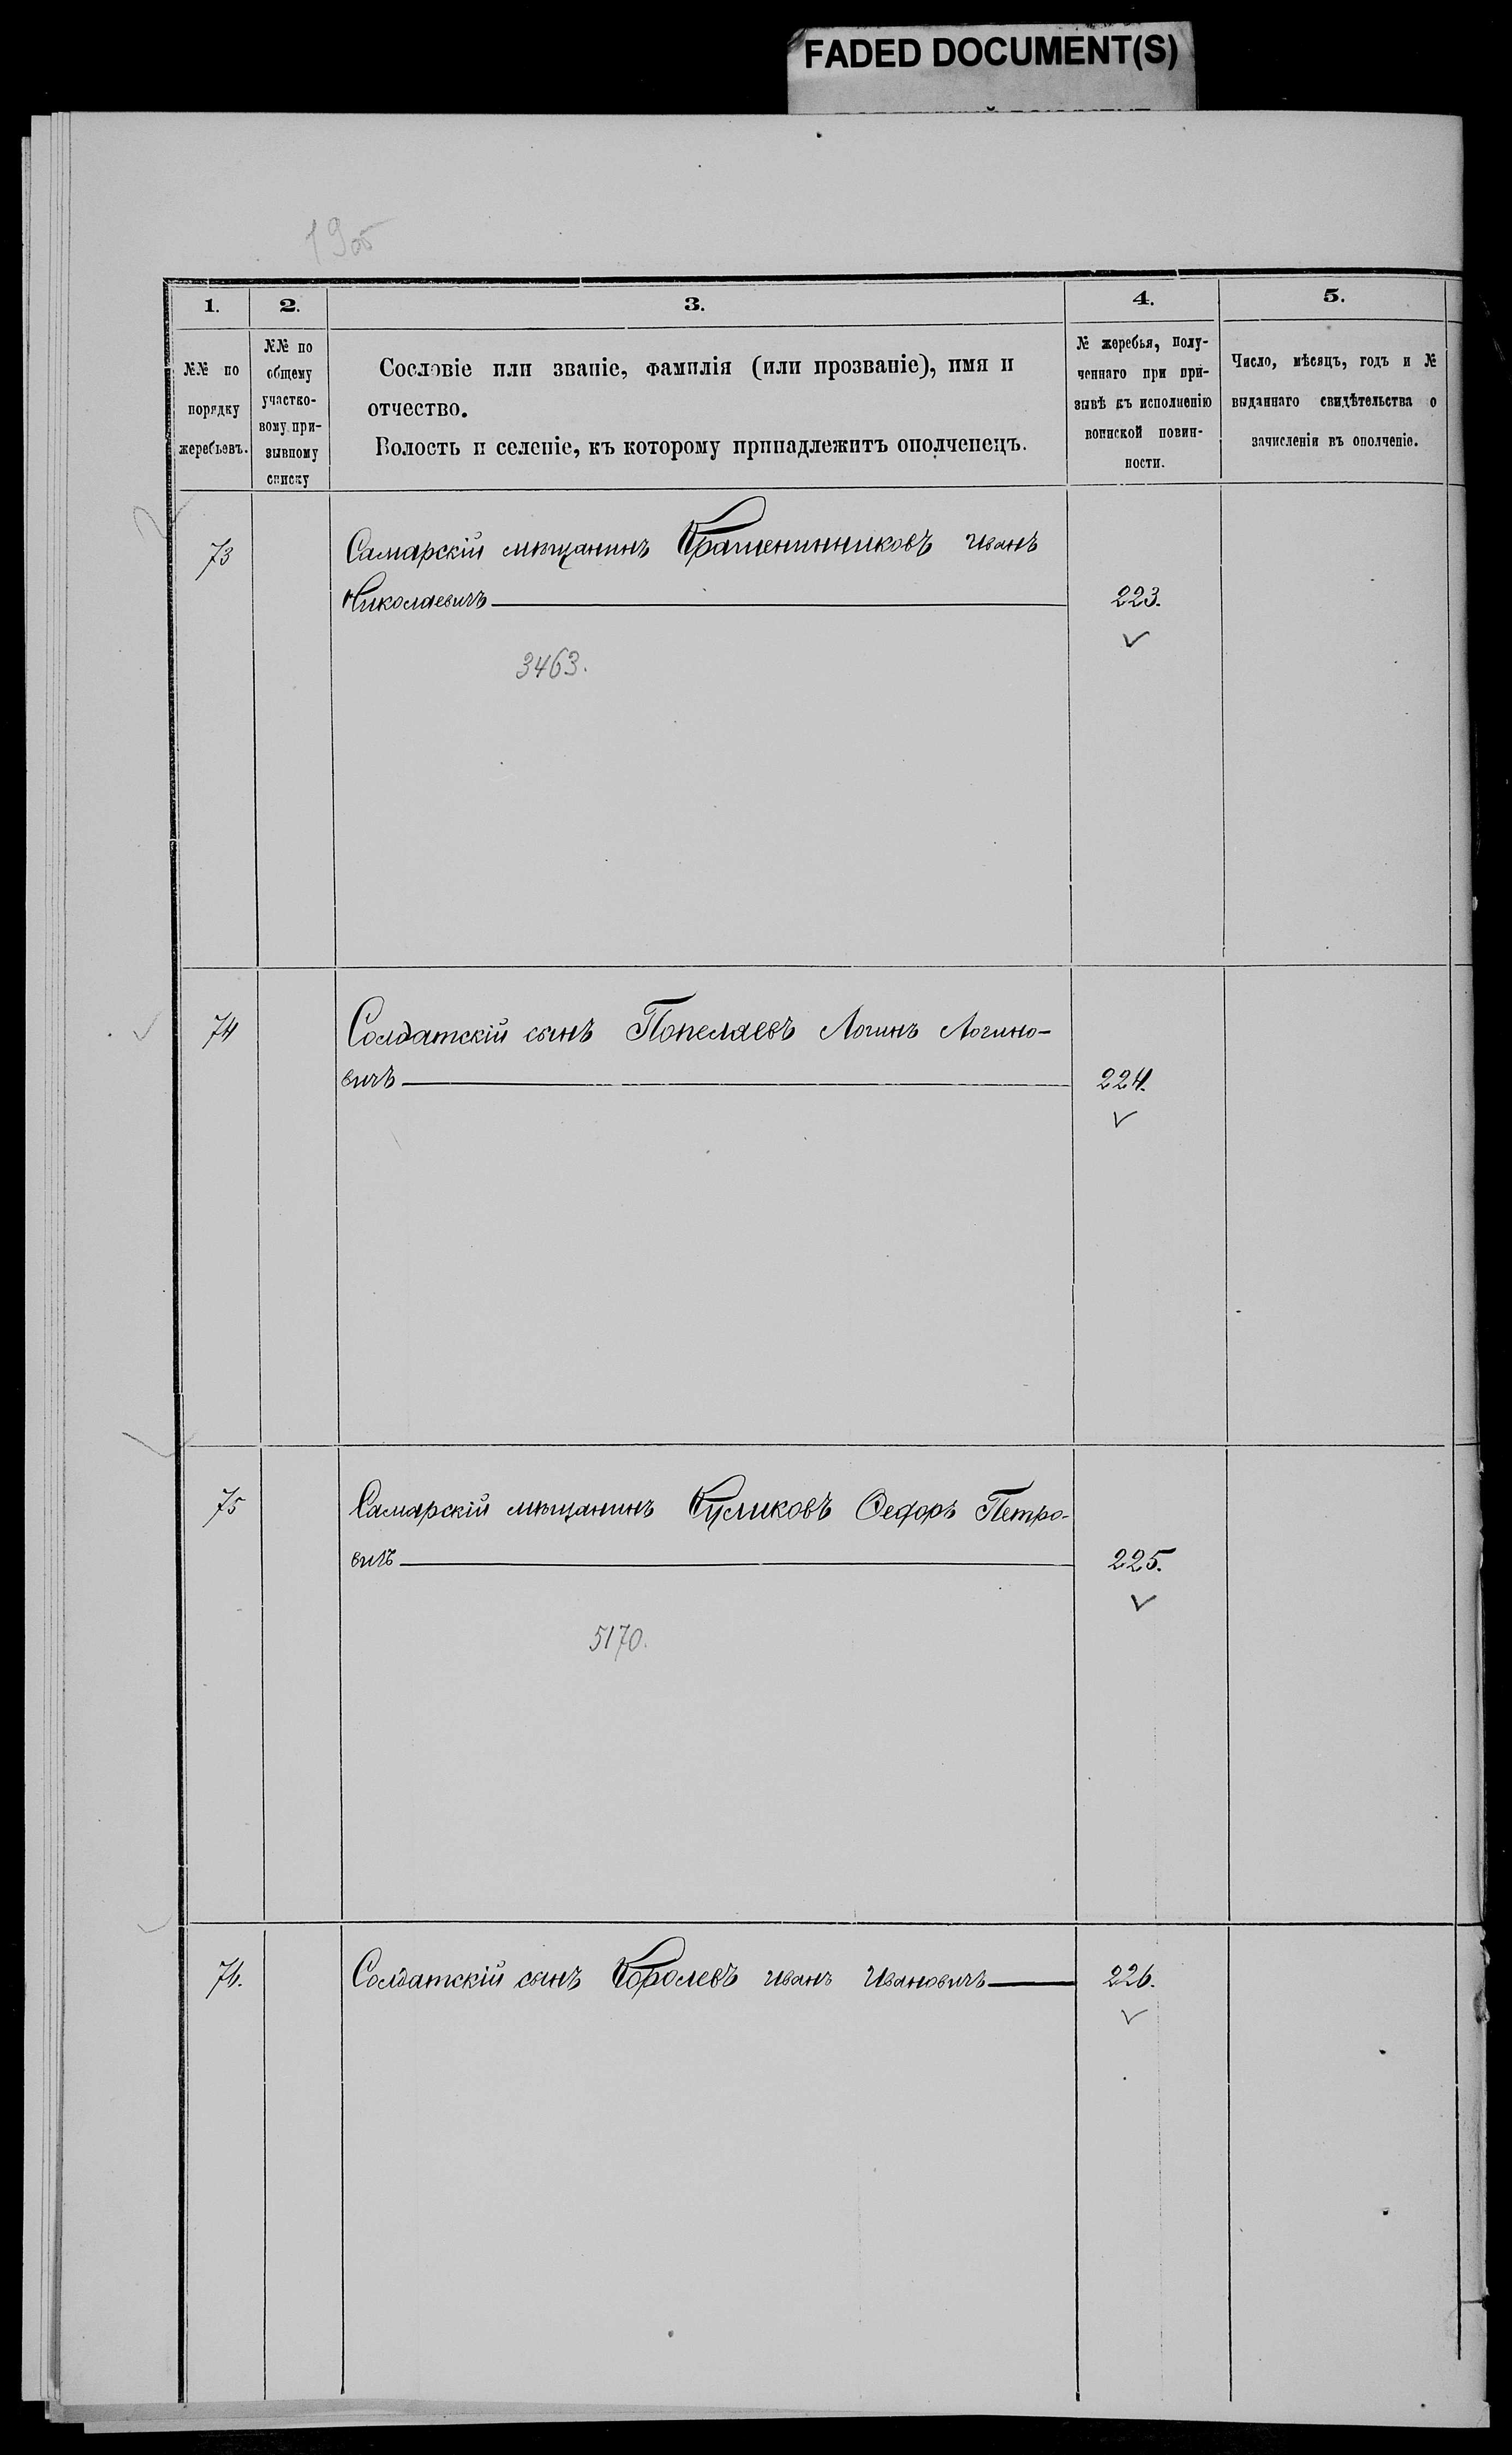 FADED DOCUMENT(S)
1. 2. 3. 4. 5.
№№ по
порядку
жеребьевъ.
№№ по
общему
участко-
вому при-
зывному
списку
Сословіе или званіе, фамилія (или прозваніе), имя и
отчество.
Волость и селеніе, къ которому принадлежитъ ополченецъ.
№ жеребья, полу-
ченнаго при при-
зывѣ къ исполненію
воинской повин-
ности.
Число, мѣсяцъ, годъ и №
выданнаго свидѣтельства о
зачисленіи въ ополченіе.
73 Самарскій мѣщанинъ Крашенинниковъ Иванъ
Николаевичъ 223.
3463.
74 Солдатскій сынъ Попелаевъ Логинъ Логино-
вичъ 224.
75 Самарскій мѣщанинъ Куликовъ Федоръ Петро-
вичъ 225.
5170.
76. Солдатскій сынъ Королевъ Иванъ Ивановичъ 226.